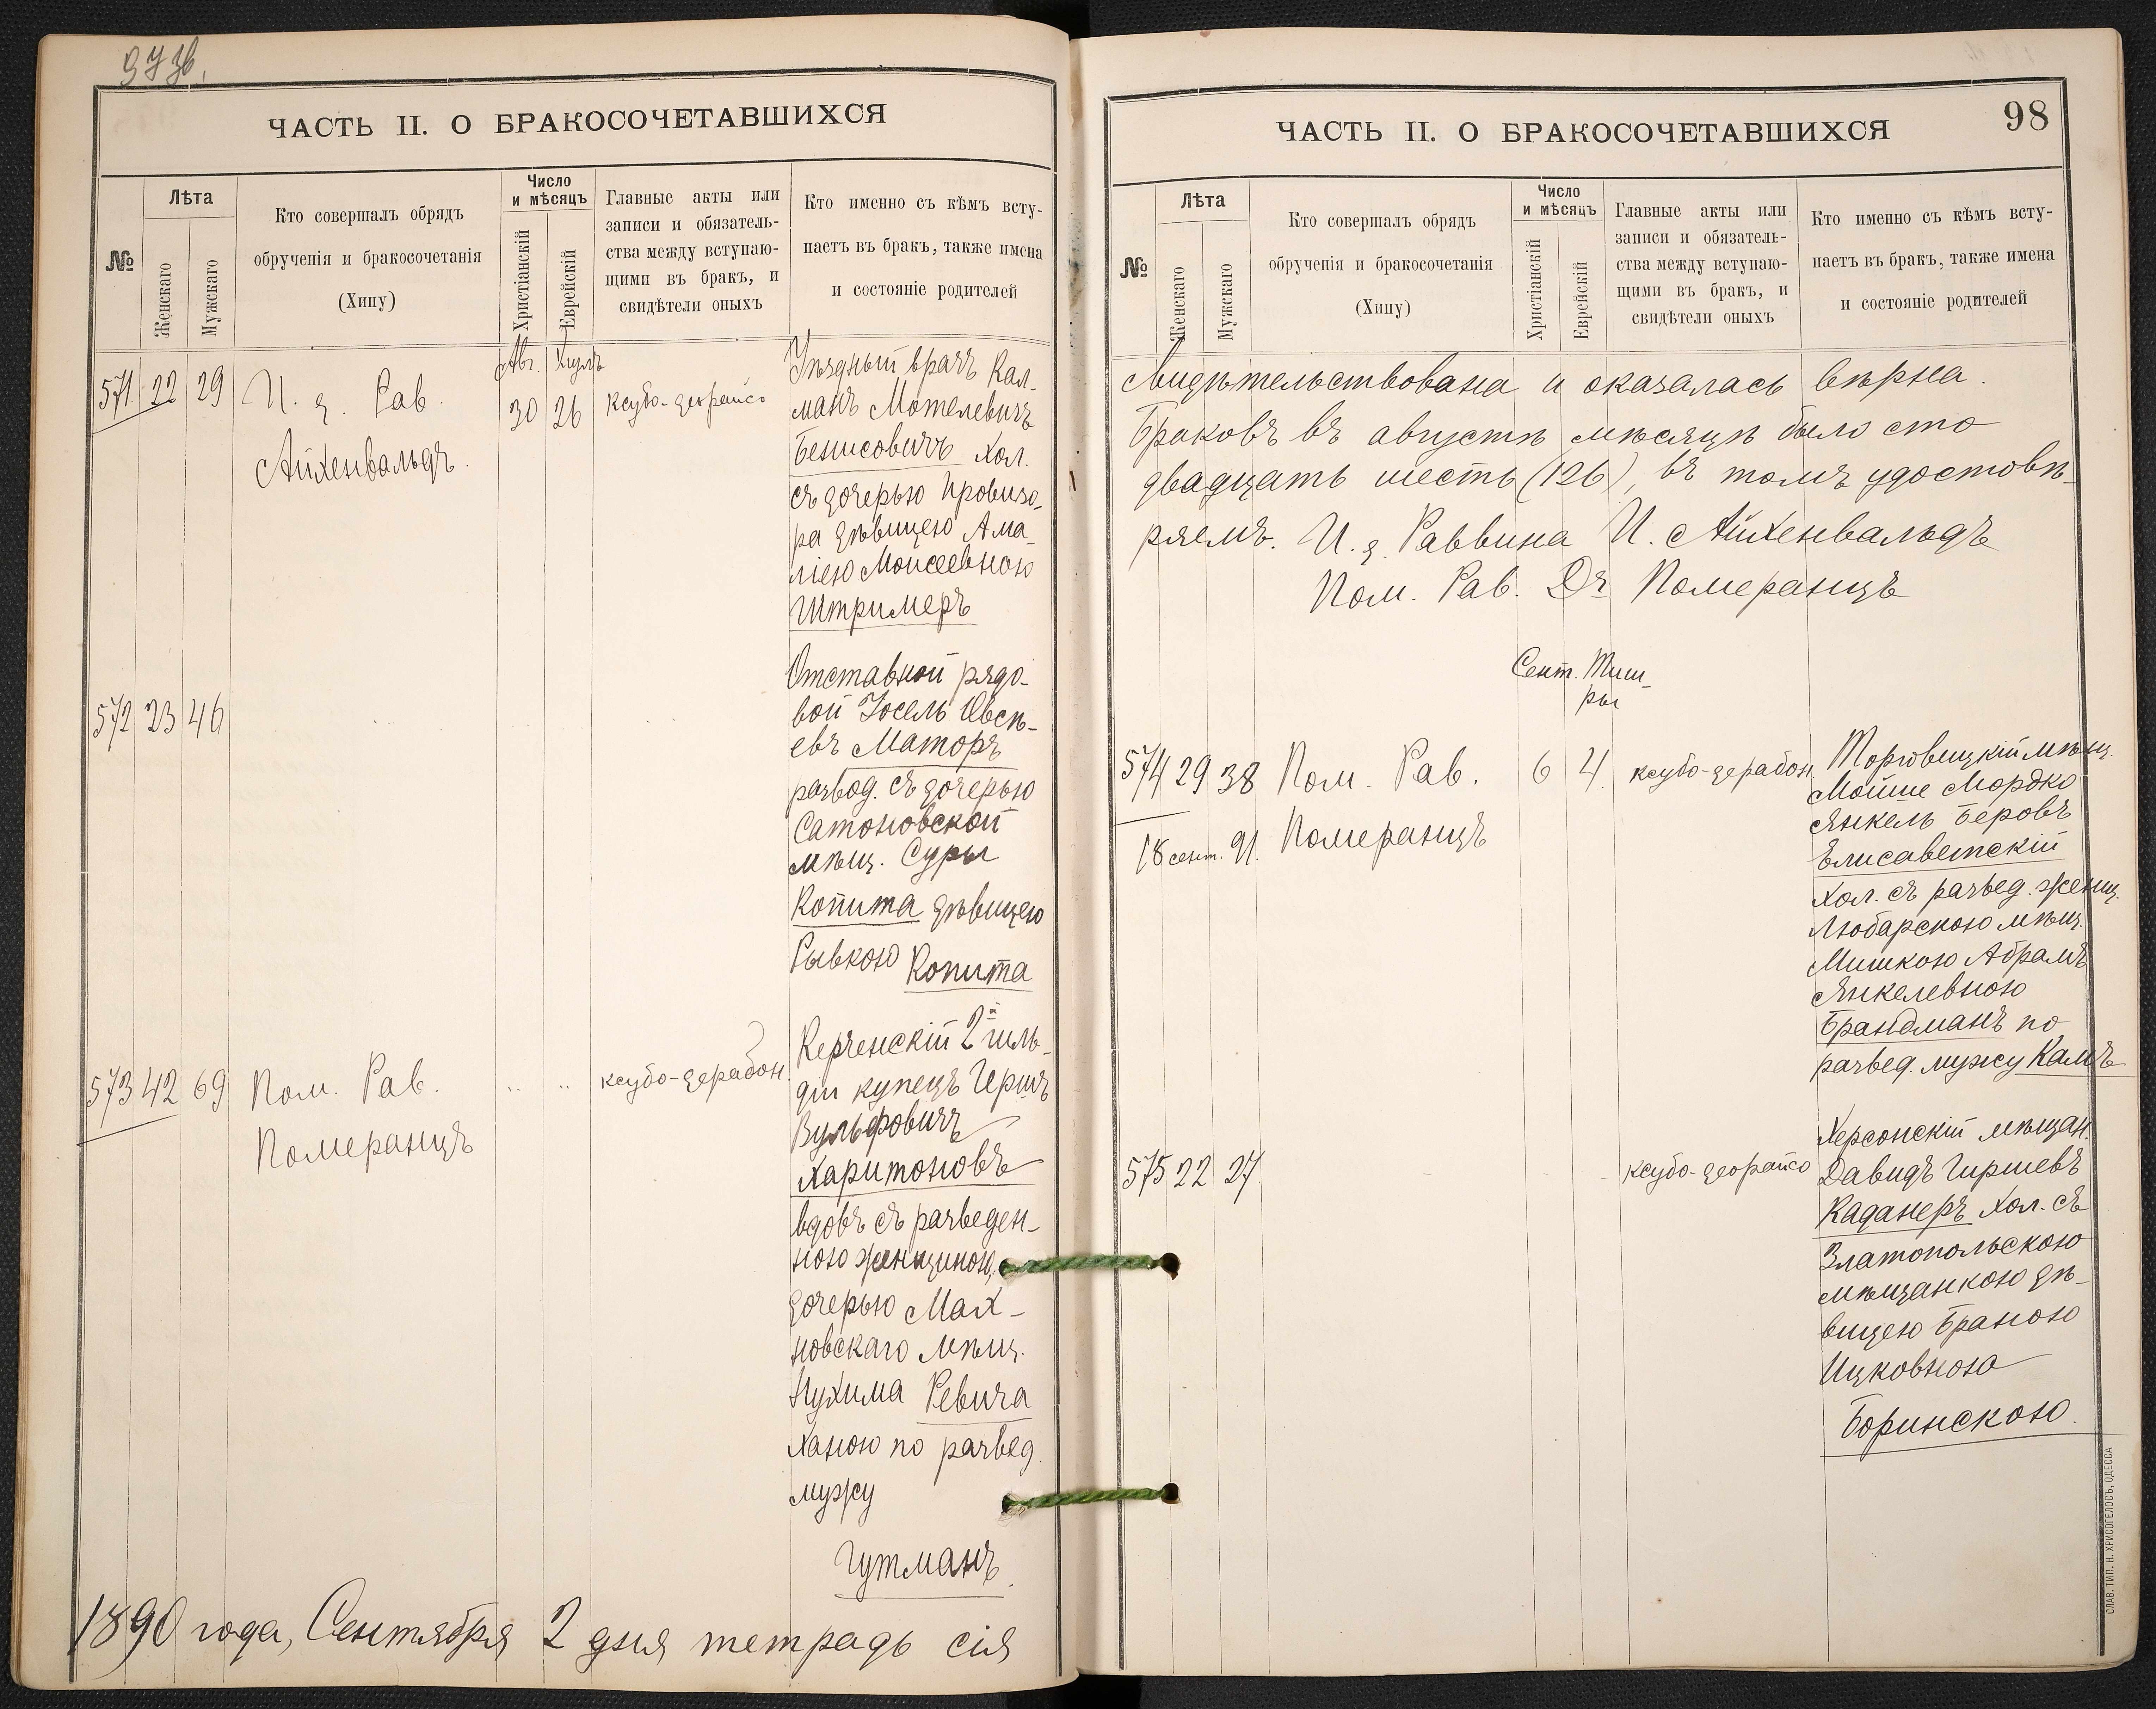 ЧАСТЬ II. О БРАКОСОЧЕТАВШИХСЯ
№
Лѣта
Женскаго
Мужскаго
Кто совершалъ обрядъ
обрученія и бракосочетанія
(Хипу)
Число
и мѣсяцъ
Христіанскій
Еврейскій
Главные акты или
записи и обязатель-
ства между вступаю-
щими въ бракъ, и
свидѣтели оныхъ
Кто именно съ кѣмъ всту-
паетъ въ бракъ, также имена
и состояніе родителей
Авг.
571 22 29 И. д. Рав.
Айхенвальдъ.
30 26 ксубо-деорайсо
Уѣздный врачъ Кал-
манъ Мотелевичъ
Бенисовичъ хол.
съ дочерью провизо-
ра дѣвицею Ама-
ліею Моисеевною
Штримеръ
572 23 46
Отставной рядо-
вой Іосель Овсѣ-
евъ Маторъ
развод. съ дочерью
Сатановской
мѣщ. Суры
Копита дѣвицею
Рывкою Копита
573 42 69 Пом. Рав.
Померанцъ
ксубо-дерабон.
Керченскій 2й гиль-
діи купецъ Гершъ
Вульфовичъ
Харитоновъ
вдовъ съ разведен-
ною женщиною,
дочерью Мах-
новскаго мѣщ.
Нухима Ревича
Ханою по развед.
мужу
Гутманъ.
1890 года, Сентября 2 дня тетрадь сія
98
ЧАСТЬ II. О БРАКОСОЧЕТАВШИХСЯ
№
Лѣта
Женскаго
Мужскаго
Кто совершалъ обрядъ
обрученія и бракосочетанія
(Хипу)
Число
и мѣсяцъ
Христіанскій
Еврейскій
Главные акты или
записи и обязатель-
ства между вступаю-
щими въ бракъ, и
свидѣтели оныхъ
Кто именно съ кѣмъ всту-
паетъ въ бракъ, также имена
и состояніе родителей
свидѣтельствована и оказалась вѣрна.
Браковъ въ августѣ мѣсяцѣ было сто
двадцать шесть (126), въ томъ удостовѣ-
ряемъ. И. д. Раввина И. Айхенвальдъ
Пом. Рав. Dr Померанцъ
Сент. Тиш-
ры
574 29 38 Пом. Рав.
18 сент. 91. Померанцъ
6 4. ксубо-дерабон.
Торговицкій мѣщ.
Мойше Мордко
Янкель Беровъ
Елисаветскій
хол. съ развед. женщ.
Любарскою мѣщ.
Мишкою Абрамъ
Янкелевною
Брандманъ по
развед. мужу Камъ
575 22 27.
ксубо-деорайсо
Херсонскій мѣщан.
Давидъ Гиршевъ
Каданеръ хол. съ
Златопольскою
мѣщанкою дѣ-
вицею Браною
Ицковною
Боринскою.
СЛАВ. ТИП. Н. ХРИСОГЕЛОСЪ, ОДЕССА